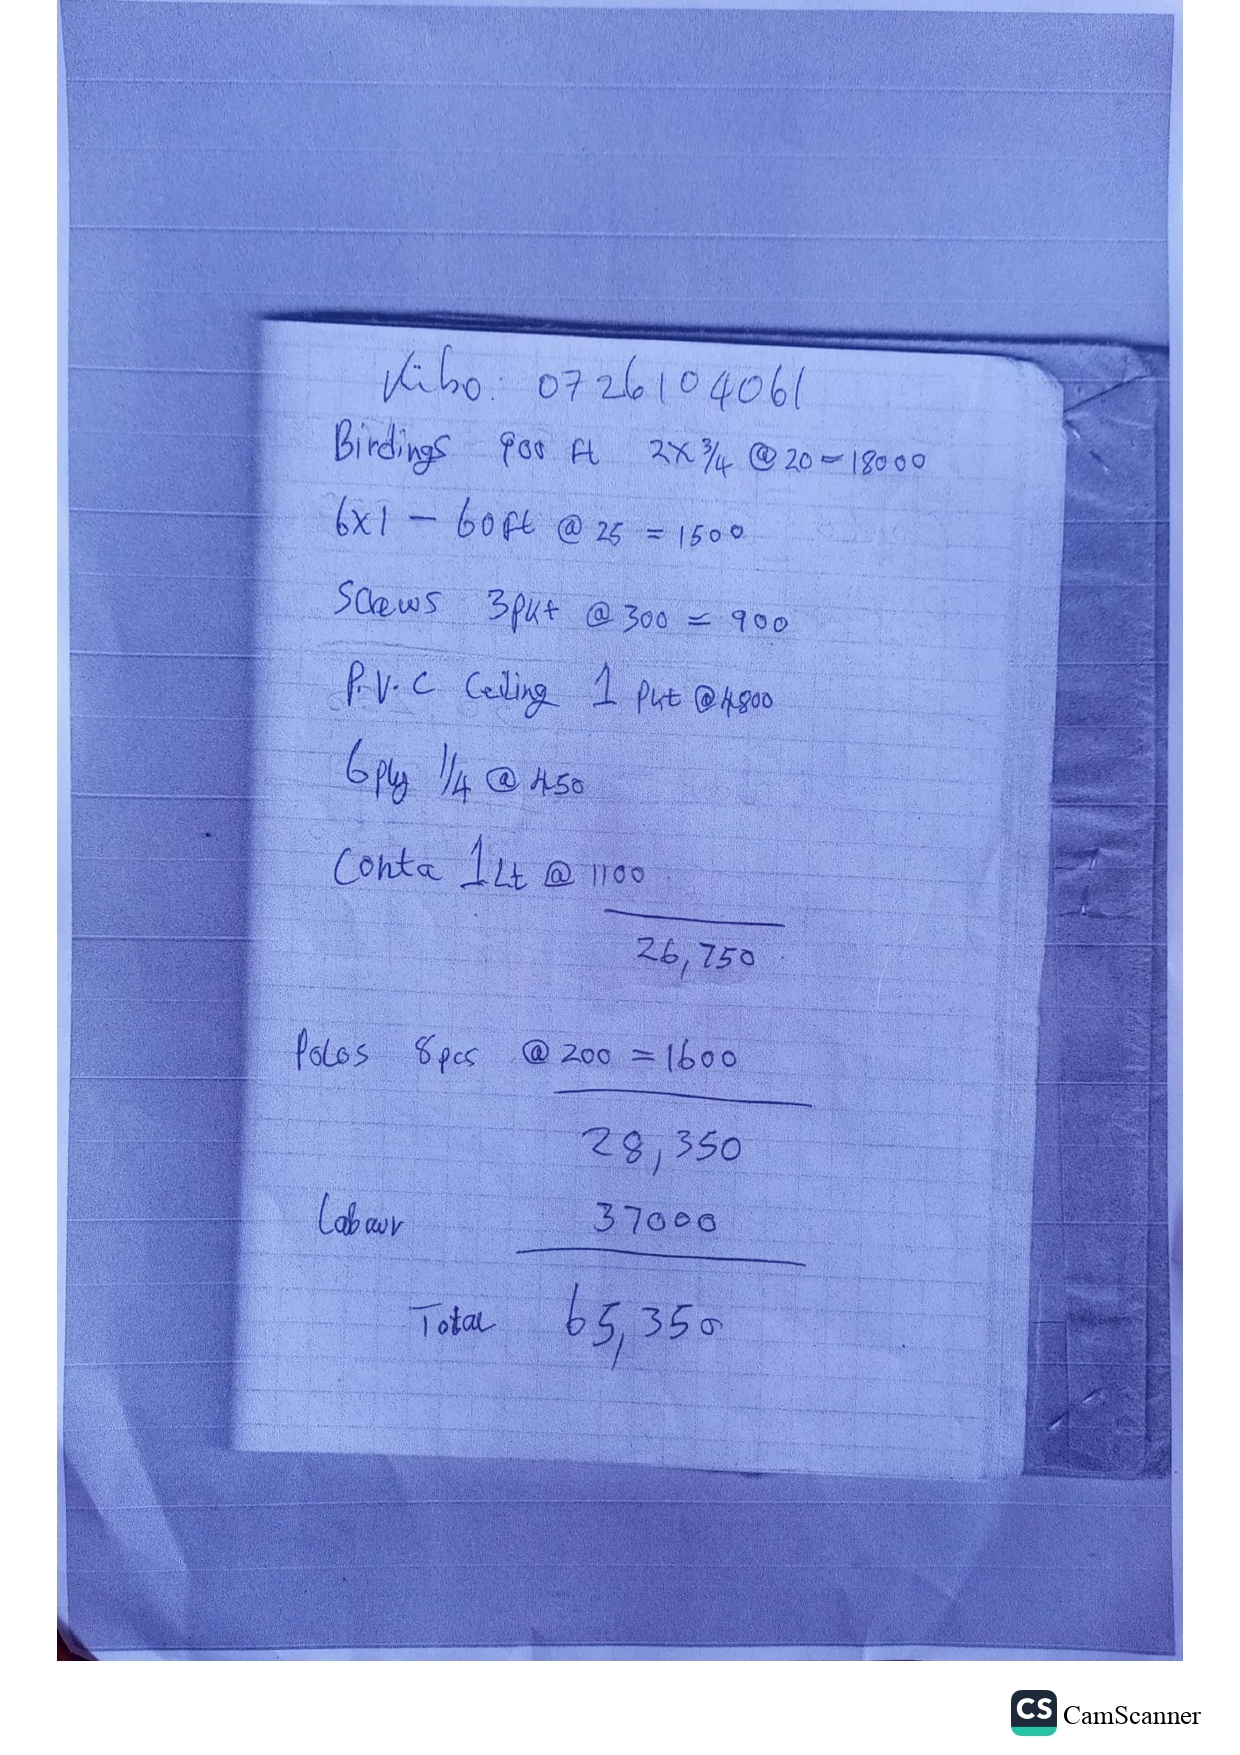 Kibo: 0726104061
Birdings 900 ft 2x3/4 @ 20 = 18000
6x1 - 60ft @ 25 = 1500
Screws 3pkt @ 300 = 900
P.V.C Ceiling 1 pkt @ 4800
6ply 1/4 @ 450
Conta 1Lt @ 1100
26,750
Polos 8pcs @ 200 = 1600
28,350
Labour 37000
Total 65,350
CS CamScanner